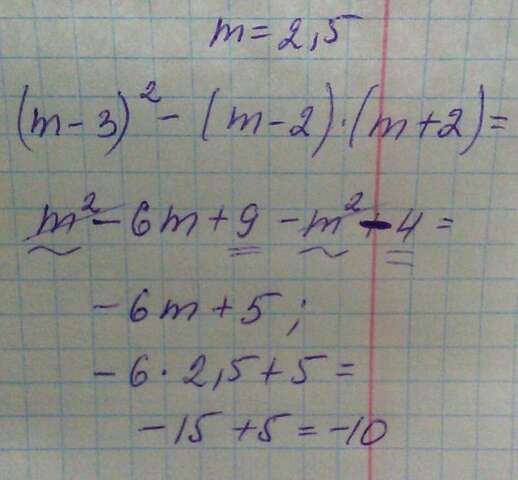 m = 2,5
(m - 3)² - (m - 2) · (m + 2) =
m² - 6m + 9 - m² - 4 =
- 6m + 5 ;
- 6 · 2,5 + 5 =
- 15 + 5 = -10